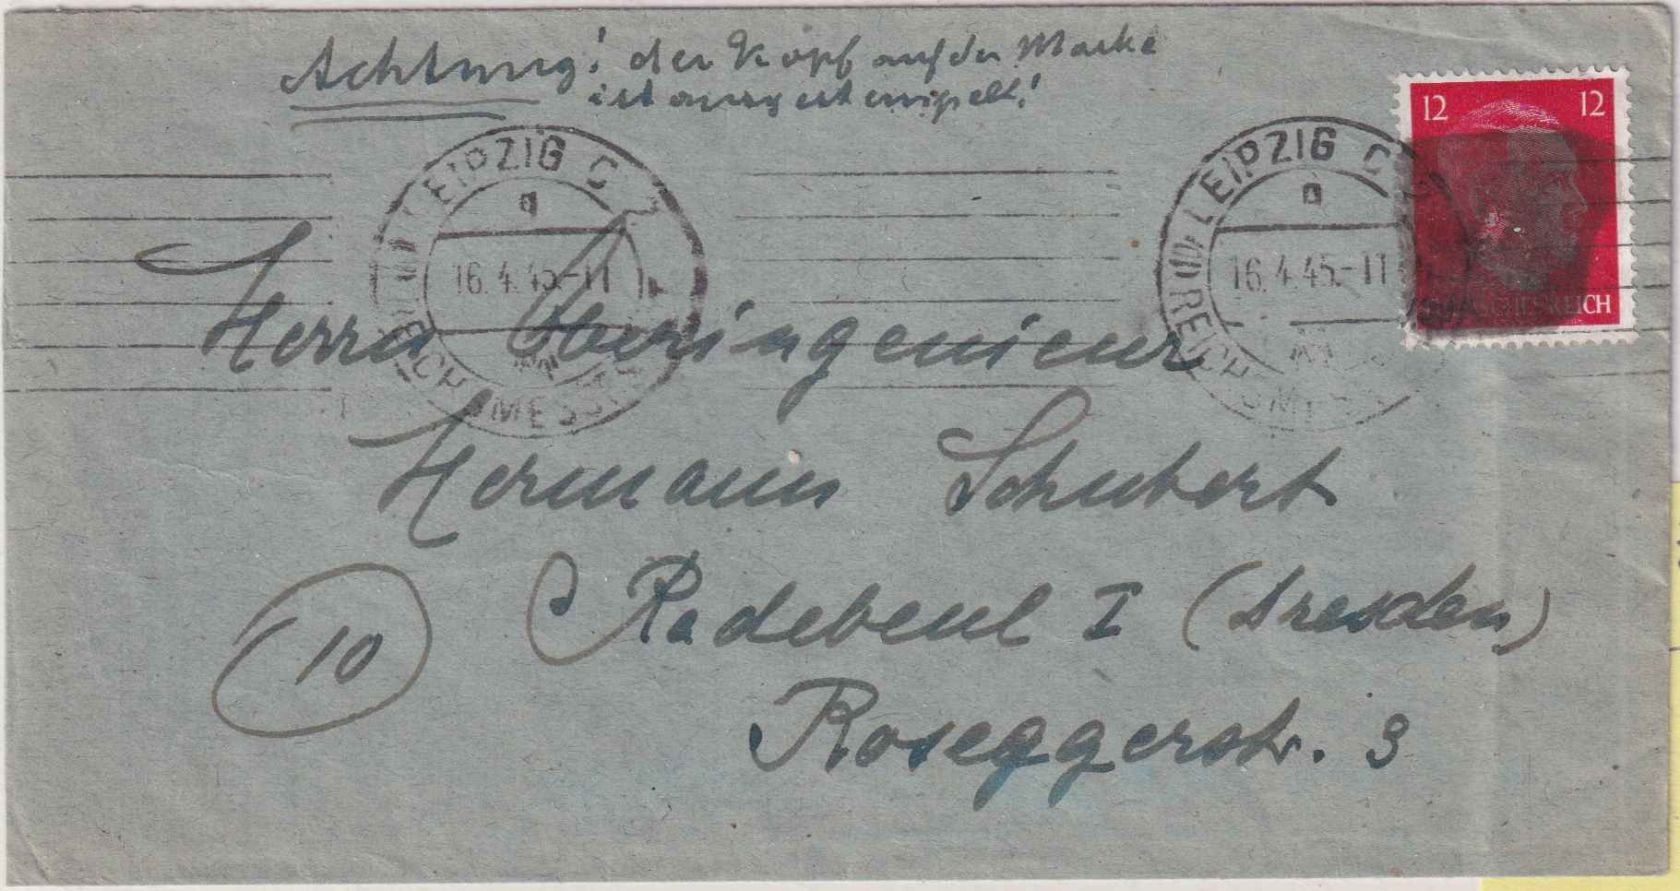 Achtung! der Kopf auf der Marke
ist ausgestempelt!
12 12
REICH
LEIPZIG C 2
a
16.4.45.-11
REICHSMESSE
LEIPZIG C
a
16.4.45.-11
REICHSMES
Herrn Oberingenieur
Hermann Schubert
10
Radebeul I (Dresden)
Roseggerstr. 3